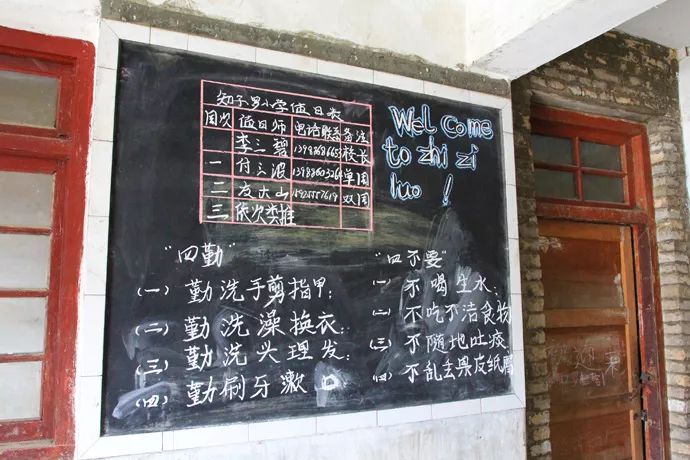 知子罗小学值日表
周次 值日师 电话联系 备注
李三碧 校长
一 付三波 单周
二 友大山 双周
三 依次类推
Welcome
to zhi zi
luo !
"四勤"
(一) 勤洗手剪指甲;
(二) 勤洗澡换衣;
(三) 勤洗头理发;
(四) 勤刷牙漱口
"四不要"
(一) 不喝生水;
(二) 不吃不洁食物
(三) 不随地吐痰;
(四) 不乱丢果皮纸屑